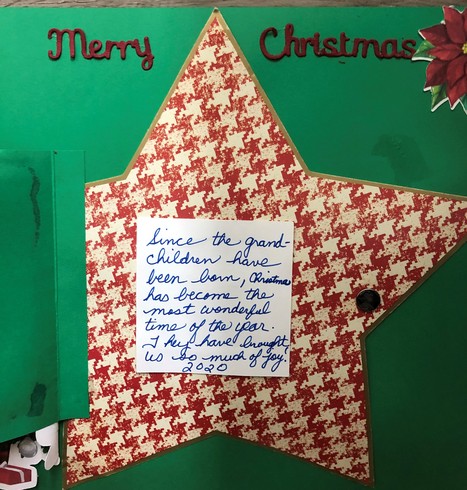 Merry Christmas
Since the grand-
children have
been born, Christmas
has become the
most wonderful
time of the year.
They have brought
us so much of joy.
2020